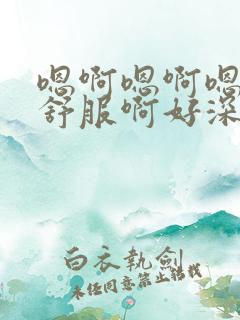 嗯啊嗯啊嗯
舒服啊好深
白衣执剑
未经同意禁止转载